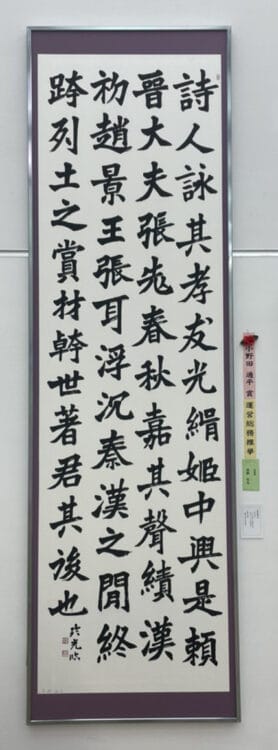 詩人詠其孝友光緝姬中興是賴
晉大夫張老春秋嘉其聲績漢
初趙景王張耳浮沉秦漢之閒終
跨列土之賞材幹世著君其後也
小野田通平賞
運営総務推挙